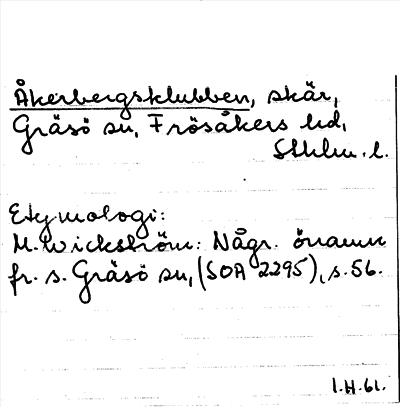 Åkerbergsklubben, skär,
Gräsö sn, Frösåkers hd,
Sthlm. l.
Etymologi:
M. Wickström: Någr. önamn
fr. s. Gräsö sn, (SOA 2295), s. 56.
I.H.61.